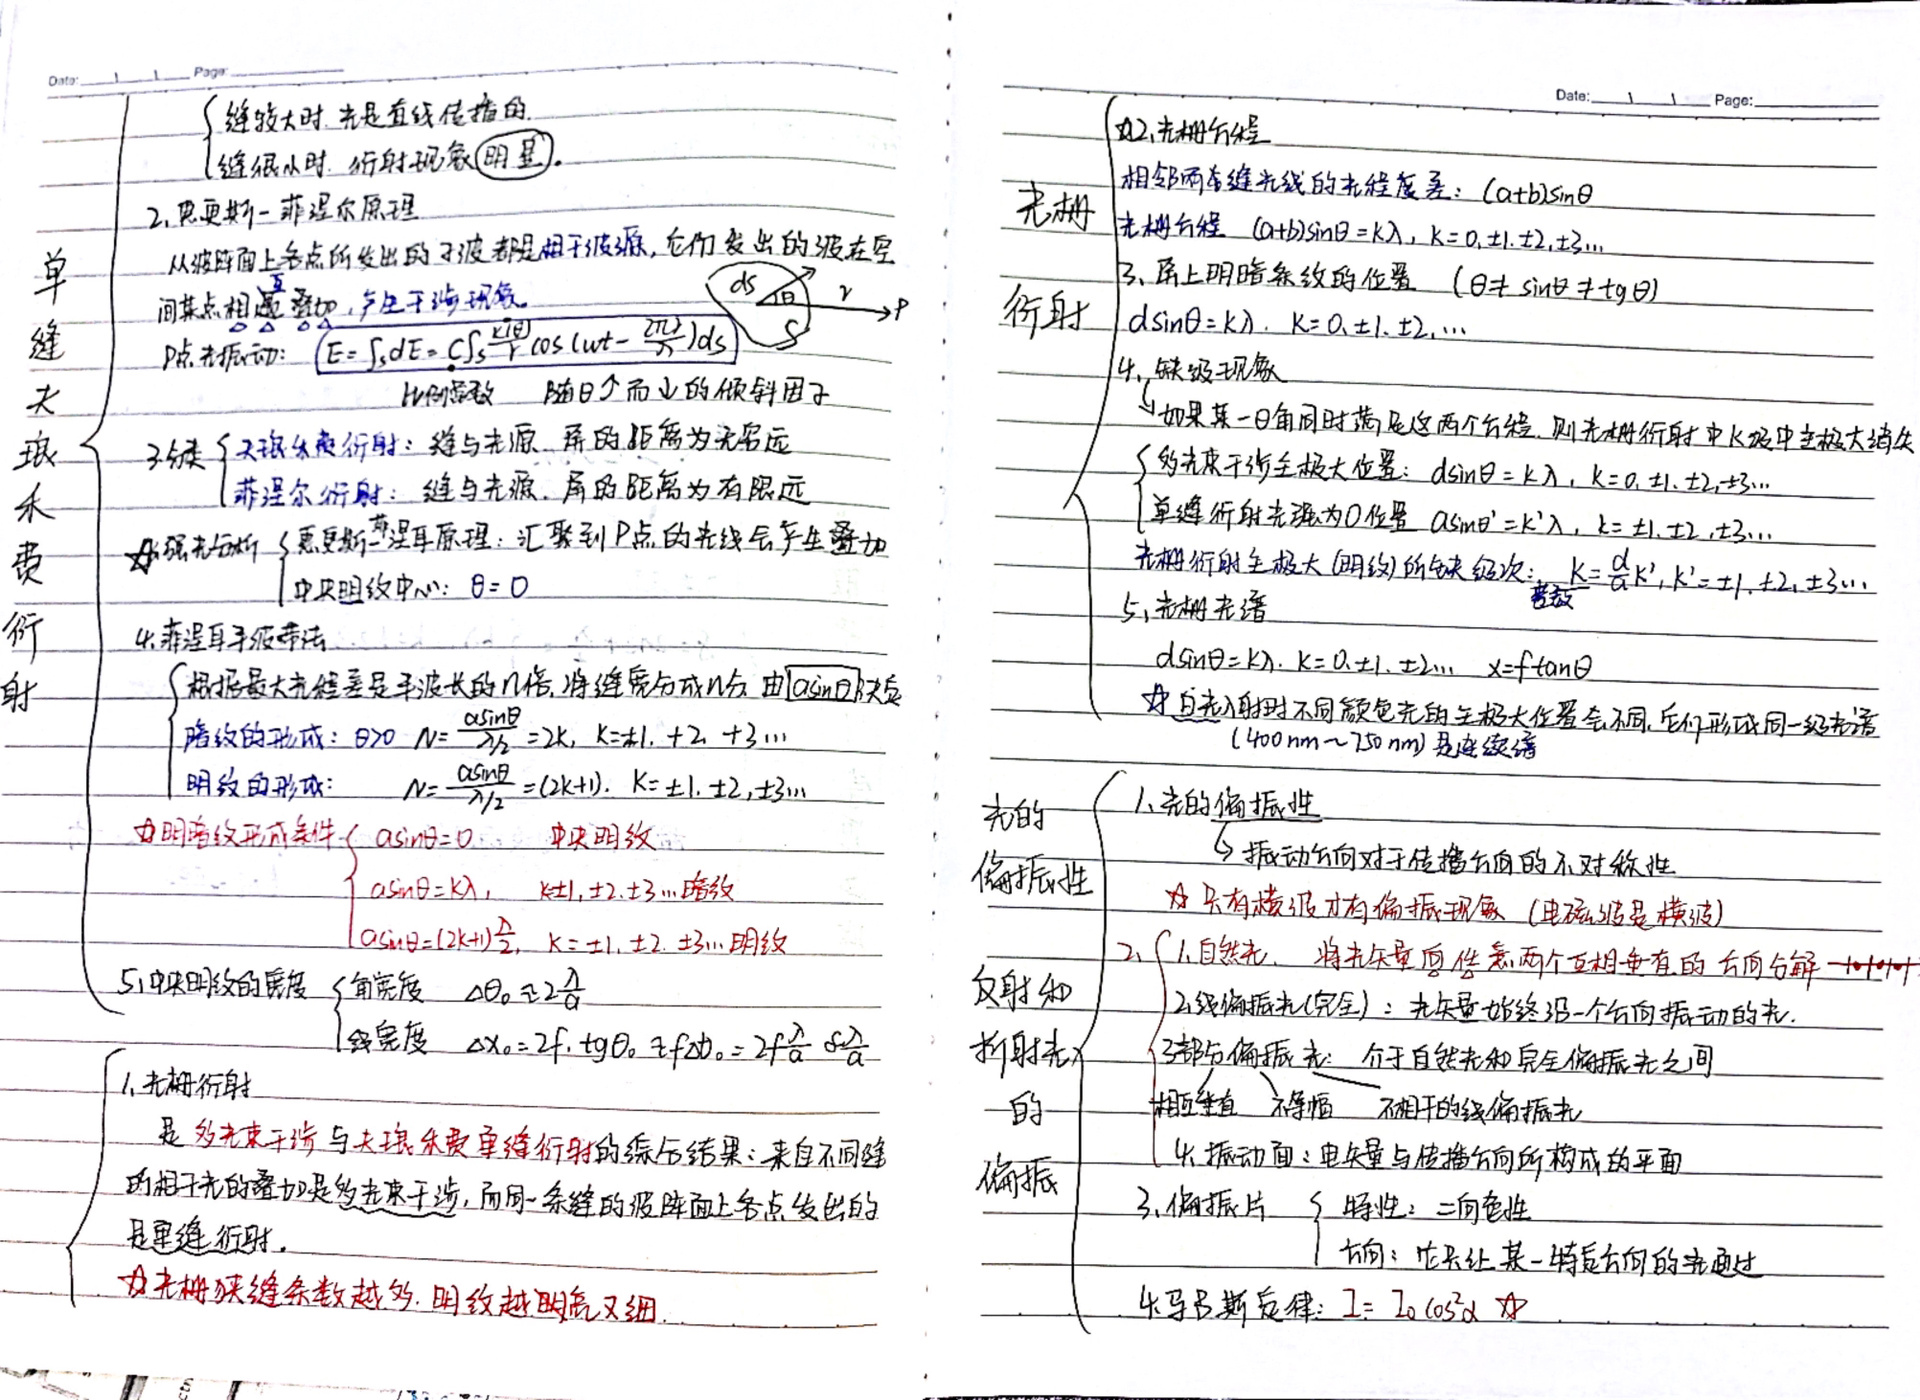 Date: \ \ Page:
缝较大时.光是直线传播的.
缝很小时.衍射现象明显.
2.惠更斯-菲涅尔原理
从波阵面上各点所发出的子波都是相干波源,它们发出的波在空
间某点相遇互叠加,产生干涉现象.
ds θ r P S
P点光振动: E=∫s dE=C∫s K(θ)/r cos(wt-2πr/λ)ds
比例常数 随θ↑而↓的倾斜因子
3.分类 夫琅禾费衍射:缝与光源、屏的距离为无穷远
菲涅尔衍射:缝与光源、屏的距离为有限远
☆强光分析 惠更斯-菲涅耳原理:汇聚到P点的光线会产生叠加
中央明纹中心:θ=0
4.菲涅耳半波带法
根据最大光程差是半波长的n倍,将缝宽分成n分.由asinθ决定
暗纹的形成:θ>0 N=asinθ/λ/2=2k, k=±1.+2.+3…
明纹的形成: N=asinθ/λ/2=(2k+1). k=±1.±2,±3…
☆明暗纹形成条件 asinθ=0 中央明纹
asinθ=kλ, k±1,±2.±3…暗纹
asinθ=(2k+1)λ/2, k=±1.±2.±3…明纹
5.中央明纹的宽度 角宽度 Δθ₀≈2λ/a
宽度 Δx₀=2f·tgθ₀≈fΔθ₀=2fλ/a ∝λ/a
单缝夫琅禾费衍射
1.光栅衍射
是多光束干涉与夫琅禾费单缝衍射的综合结果:来自不同缝
的相干光的叠加是多光束干涉,而同一条缝的波阵面上各点发出的
是单缝衍射.
☆光栅狭缝条数越多.明纹越明亮又细.
Date: \ \ Page:
光栅衍射
☆2.光栅方程
相邻两条缝光线的光程度差:(a+b)sinθ
光栅方程 (a+b)sinθ=kλ, k=0.±1.±2,±3…
3.屏上明暗条纹的位置 (θ≠sinθ≠tgθ)
dsinθ=kλ. k=0.±1.±2,…
4.缺级现象
↳如果某一θ角同时满足这两个方程.则光栅衍射中k级中主极大消失
多光束干涉主极大位置:dsinθ=kλ, k=0.±1.±2,±3…
单缝衍射光强为0位置 asinθ'=k'λ, k=±1.±2,±3…
光栅衍射主极大(明纹)所缺级次: k=d/a k', k'=±1.±2,±3…
整数
5.光栅光谱
dsinθ=kλ. k=0.±1.±2… x=ftanθ
☆白光入射时不同颜色光的主极大位置会不同.它们形成同一级光谱
(400nm~750nm)是连续谱
光的偏振性
反射和折射光的偏振
1.光的偏振性
↳振动方向对于传播方向的不对称性
☆只有横波才有偏振现象(电磁波是横波)
2. 1.自然光. 将光矢量向任意两个互相垂直的方向分解
2.线偏振光(完全):光矢量始终沿一个方向振动的光.
3.部分偏振光: 介于自然光和完全偏振光之间
相互垂直 不等幅 不相干的线偏振光
4.振动面:电矢量与传播方向所构成的平面
3.偏振片 特性:二向色性
方向:它只让某一特定方向的光通过
4.马吕斯定律:I=I₀cos²α ☆